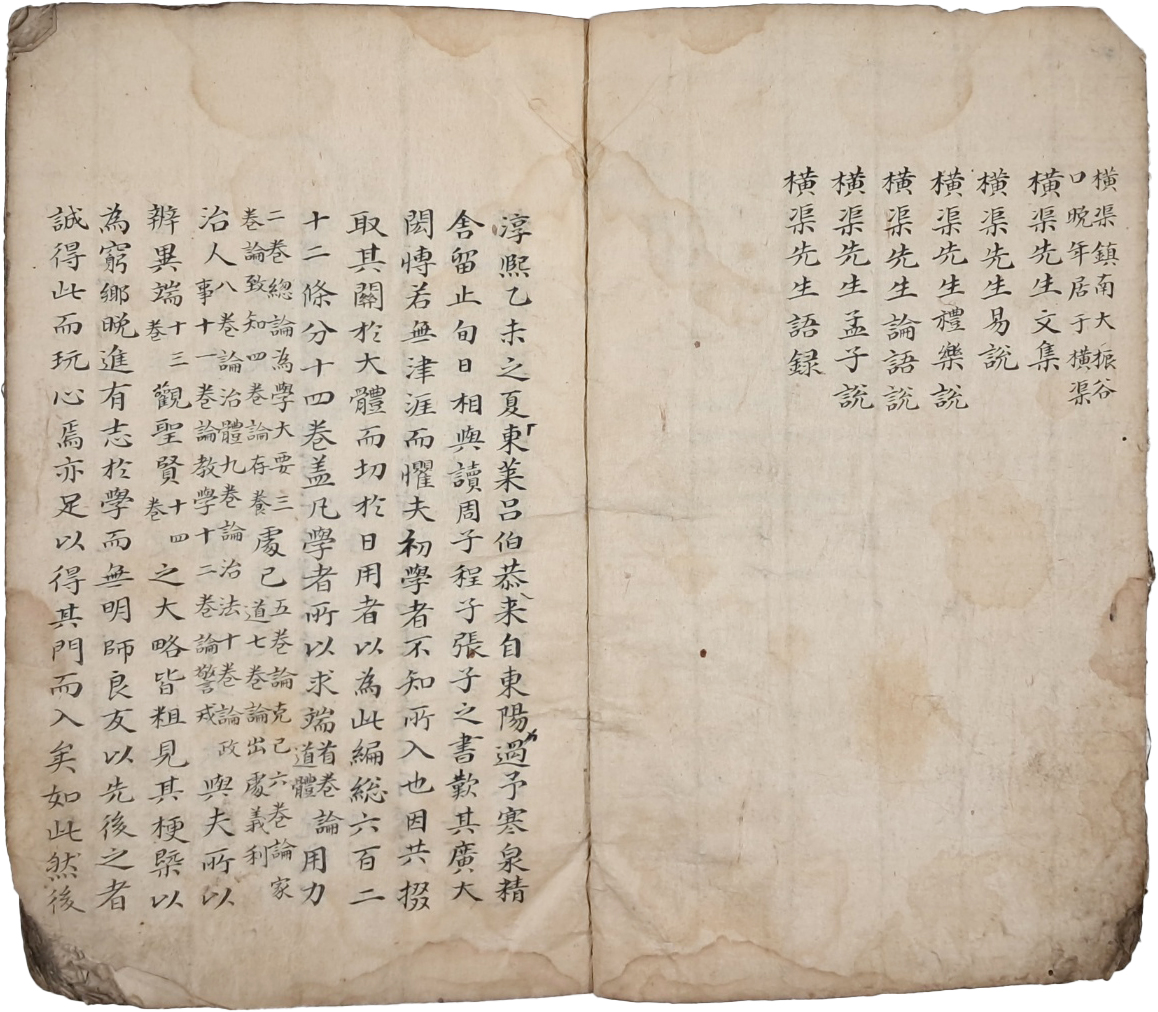 橫渠鎮南大振谷
口晚年居于橫渠
橫渠先生文集
橫渠先生易說
橫渠先生禮樂說
橫渠先生論語說
橫渠先生孟子說
橫渠先生語録
淳熙乙未之夏東萊呂伯恭来自東陽過予寒泉精
舍留止旬日相與讀周子程子張子之書歎其廣大
閎博若無津涯而懼夫初學者不知所入也因共掇
取其關於大體而切於日用者以為此編総六百二
十二條分十四卷盖凡學者所以求端首卷論道體用力
二卷總論為學大要三卷論致知四卷論存養處己五卷論克己六卷論家道七卷論出處義利
治人八卷論治體九卷論治法十卷論政事十一卷論教學十二卷論警戒與夫所以
辨異端十三卷觀聖賢十四卷之大略皆粗見其梗槩以
為窮鄉晚進有志於學而無明師良友以先後之者
誠得此而玩心焉亦足以得其門而入矣如此然後